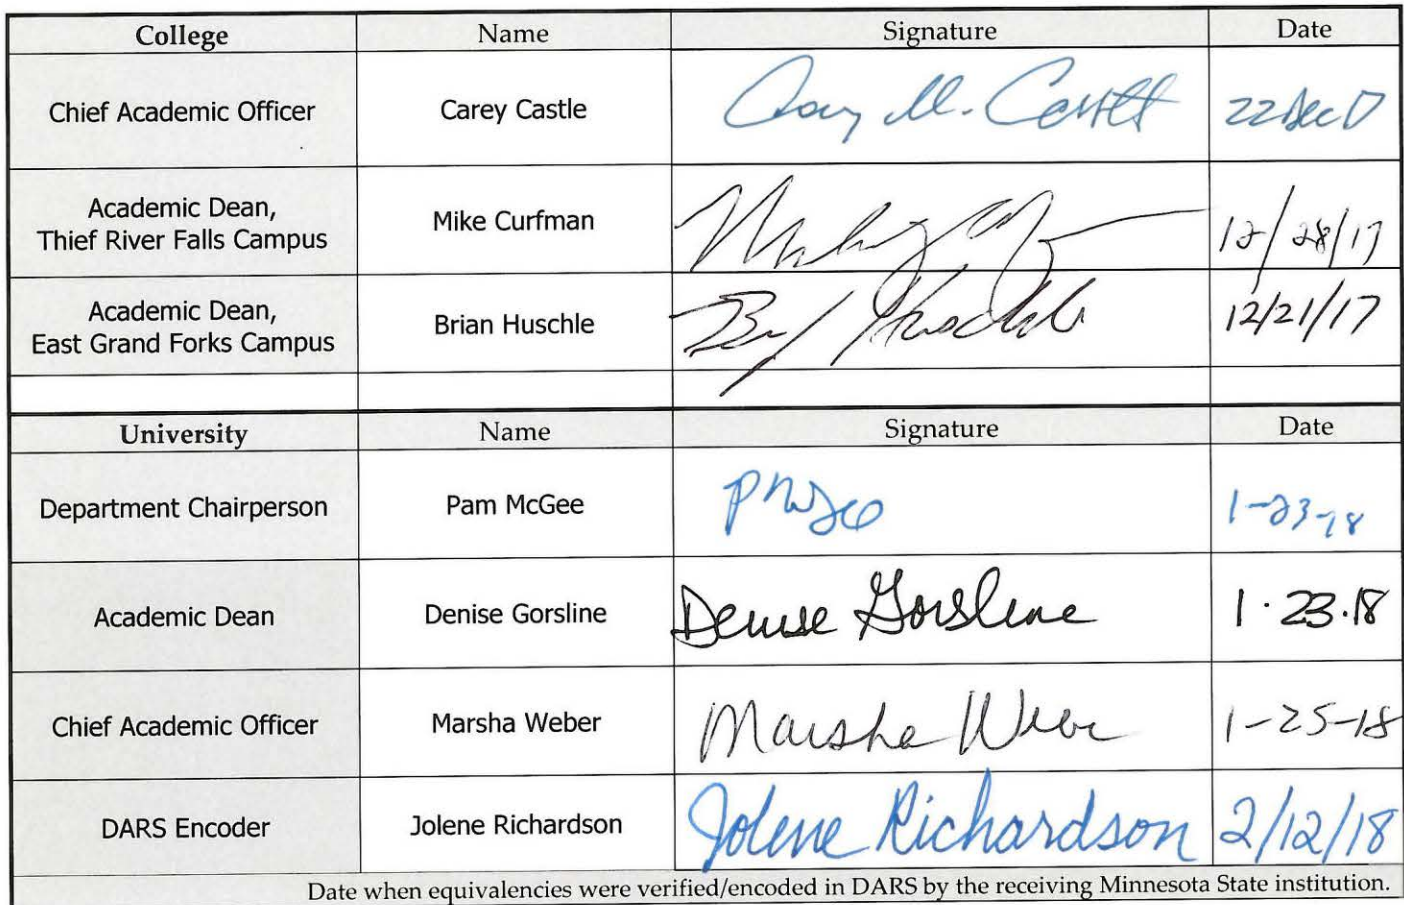 College Name Signature Date
Chief Academic Officer Carey Castle Carey M. Castle 22 Dec 17
Academic Dean,
Thief River Falls Campus Mike Curfman 12/28/17
Academic Dean,
East Grand Forks Campus Brian Huschle Huschle 12/21/17
University Name Signature Date
Department Chairperson Pam McGee 1-23-18
Academic Dean Denise Gorsline Denise Gorsline 1·23·18
Chief Academic Officer Marsha Weber Marsha Weber 1-25-18
DARS Encoder Jolene Richardson Jolene Richardson 2/12/18
Date when equivalencies were verified/encoded in DARS by the receiving Minnesota State institution.